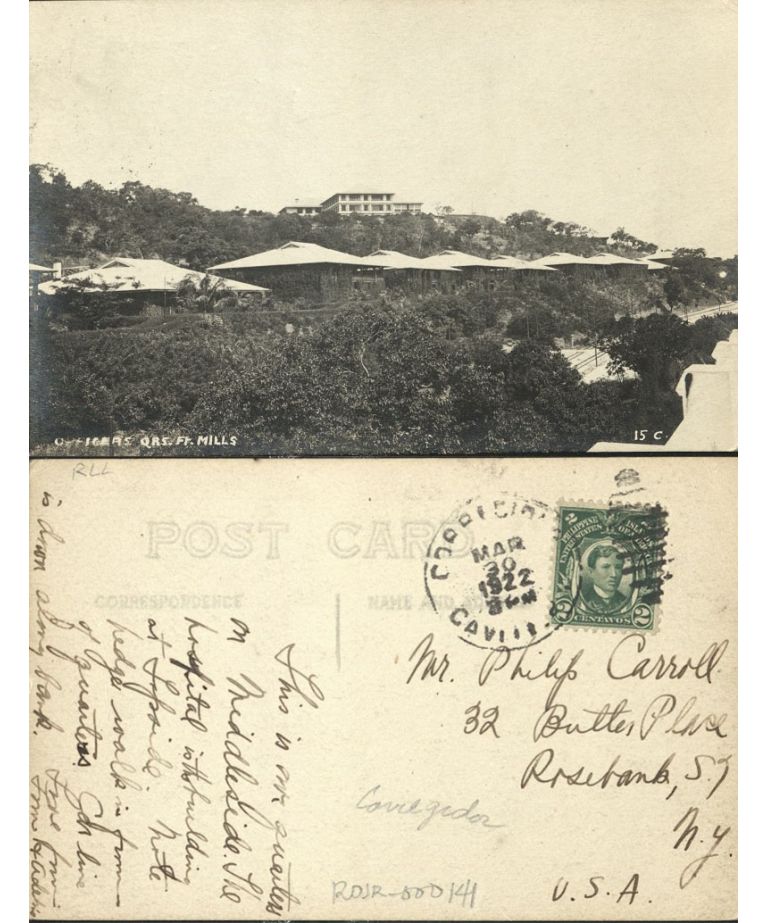 OFFICERS QRS. FT. MILLS
15 C.
RLL
POST CARD
CORRESPONDENCE
NAME AND
CORREGIDOR
MAR
30
1922
CAVITE
2 PHILIPPINE ISLANDS
UNITED STATES OF
2 CENTAVOS 2
This is our quarters
on Middleside. The
hospital is the building
at Topside. Note
hedge walk in front
of quarters. Car line
is down along bank.
Mr. Philip Carroll
32 Butler Place
Rosebank, S.I
N.Y.
U.S.A.
Corregidor
ROJR-000141